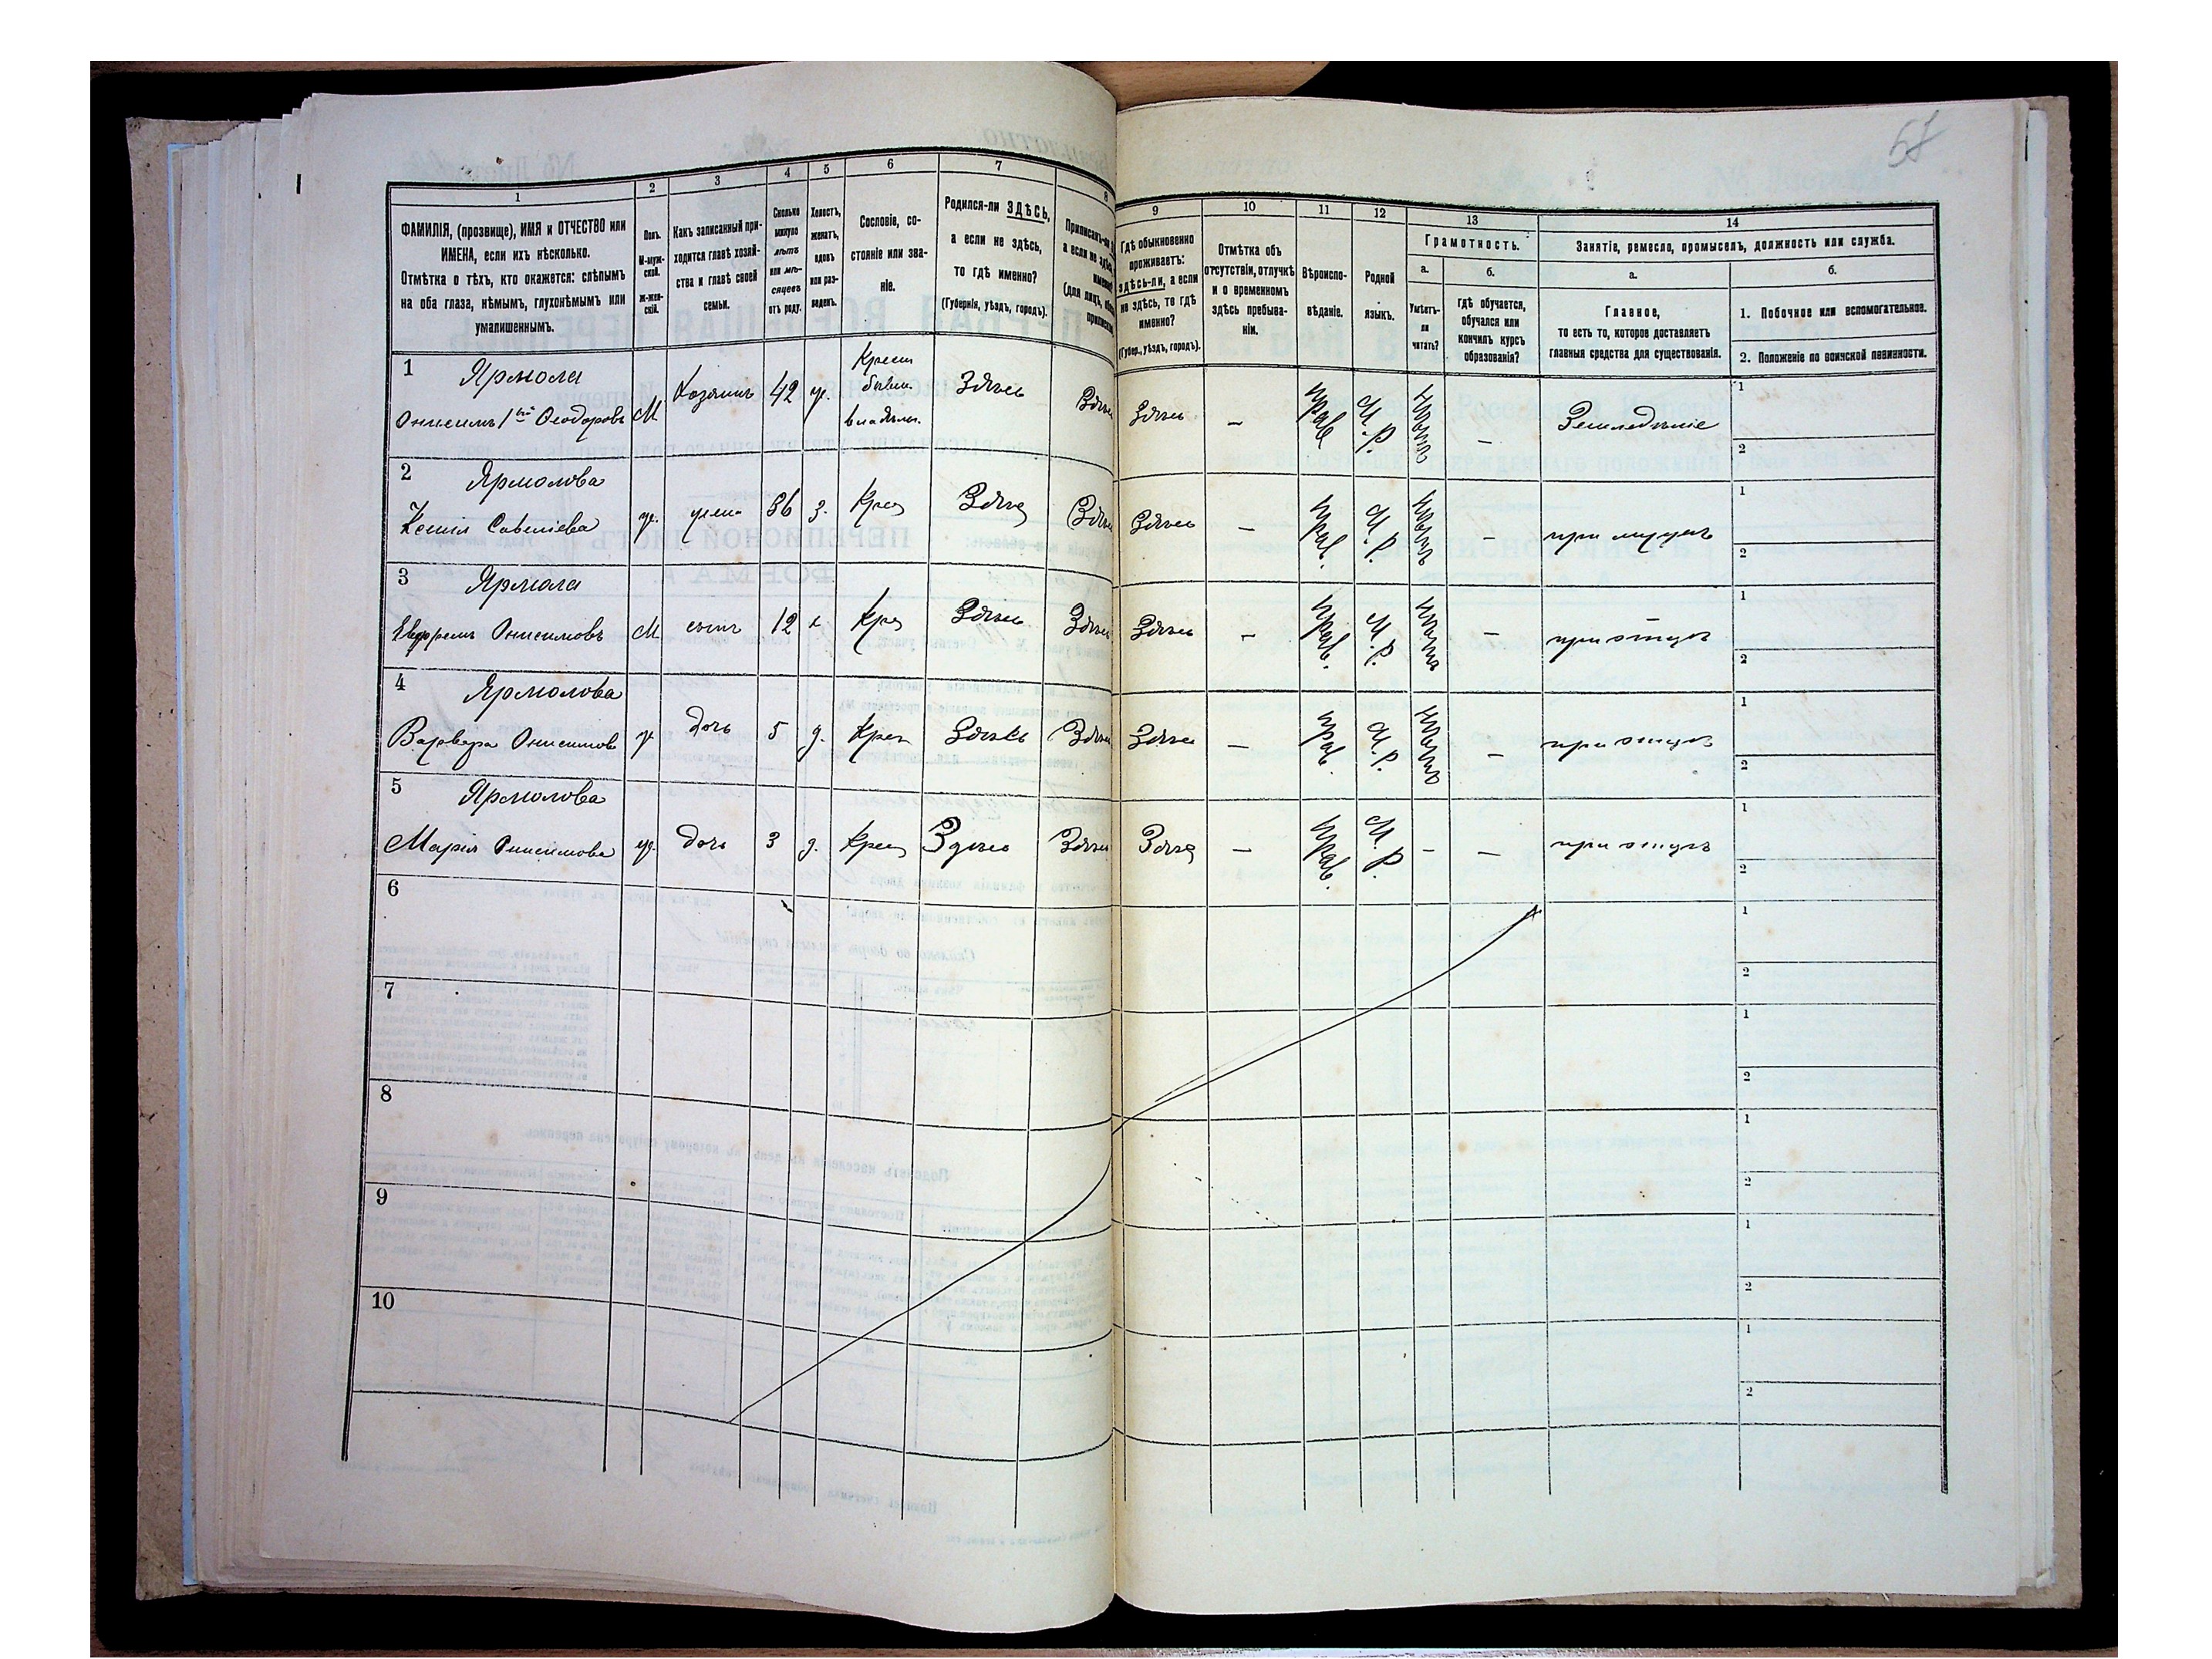 57
1 2 3 4 5 6 7 8
ФАМИЛІЯ, (прозвище), ИМЯ и ОТЧЕСТВО или
ИМЕНА, если ихъ нѣсколько.
Отмѣтка о тѣхъ, кто окажется: слѣпымъ
на оба глаза, нѣмымъ, глухонѣмымъ или
умалишеннымъ.
Полъ.
М-муж-
ской.
ж-жен-
скій.
Какъ записанный при-
ходится главѣ хозяй-
ства и главѣ своей
семьи.
Сколько
минуло
лѣтъ
или мѣ-
сяцевъ
отъ роду.
Холостъ,
женатъ,
вдовъ
или раз-
веденъ.
Сословіе, со-
стояніе или зва-
ніе.
Родился-ли ЗДѢСЬ,
а если не здѣсь,
то гдѣ именно?
(Губернія, уѣздъ, городъ).
9 10 11 12 13 14
Гдѣ обыкновенно
проживаетъ:
здѣсь-ли, а если
не здѣсь, то гдѣ
именно?
(Губер., уѣздъ, городъ).
Отмѣтка объ
отсутствіи, отлучкѣ
и о временномъ
здѣсь пребыва-
ніи.
Вѣроиспо-
вѣданіе.
Родной
языкъ.
Грамотность.
а.
Умѣетъ-
ли
читать?
б.
гдѣ обучается,
обучался или
кончилъ курсъ
образованія?
Занятіе, ремесло, промыселъ, должность или служба.
а.
Главное,
то есть то, которое доставляетъ
главныя средства для существованія.
б.
1. Побочное или вспомогательное.
2. Положеніе по воинской повинности.
1 Ярмола
Онисимъ 1й Феодоровъ М Хозяинъ 42 ж. Крест бывш. владѣль. Здѣсь Здѣсь Здѣсь — Прав М.Р. — Земледѣліе 1
2
2 Ярмолова
Ксенія Савеліева ж. жена 36 з. Крес Здѣсь Здѣсь Здѣсь — Прав. М.Р. — при мужѣ 1
2
3 Ярмола
Евфремъ Онисимовъ М сынъ 12 х Крес Здѣсь Здѣсь Здѣсь — Прав. М.Р. — при отцѣ 1
2
4 Ярмолова
Варвара Онисимова ж дочь 5 д. Крес Здѣсь Здѣсь Здѣсь — Прав. М.Р. — при отцѣ 1
2
5 Ярмолова
Марія Онисимова ж. дочь 3 д. Крес Здѣсь Здѣсь Здѣсь — Прав. М.Р. — — при отцѣ 1
2
6 1
2
7 1
2
8 1
2
9 1
2
10 1
2